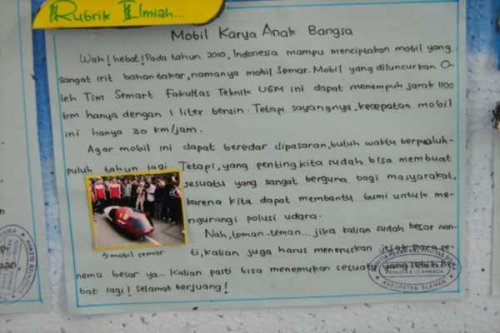 Rubrik Ilmiah...
Mobil Karya Anak Bangsa
Wah! hebat! Pada tahun 2010, Indonesia mampu menciptakan mobil yang
sangat irit bahan bakar, namanya mobil Semar. Mobil yang diluncurkan O-
leh Tim Semart Fakultas Teknik UGM ini dapat menempuh jarak 1100
km hanya dengan 1 liter bensin. Tetapi sayangnya, kecepatan mobil
ini hanya 30 km/jam.
Agar mobil ini dapat beredar dipasaran, butuh waktu berpuluh-
puluh tahun lagi. Tetapi, yang penting kita sudah bisa membuat
sesuatu yang sangat berguna bagi masyarakat,
karena kita dapat membantu bumi untuk me-
ngurangi polusi udara.
Nah, teman-teman... jika kalian sudah besar nan-
ti, kalian juga harus meneruskan jejak para pe-
nemu besar ya... Kalian pasti bisa menemukan sesuatu yang lebih he-
bat lagi! Selamat berjuang!
mobil semar
KABUPATEN SLEMAN